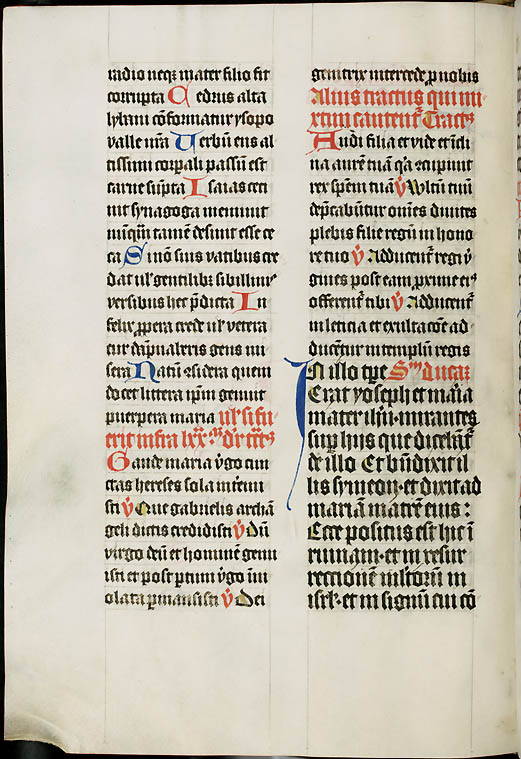 radio neqꝫ mater filio fit
corrupta Cedrus alta
lybani cōformatur ysopo
valle nr̄a Verbū ens al
tissimi corpali passū est
carne sūpta Isaias ceci
nit synagoga meminit
nūqū tamē desinit esse ce
ca Si nō suis vatibus cre
dat ul̄ gentilibꝫ sibillinis
versibus hec p̄dicta In
felix ꝓpera crede ul̄ vetera
cur dāpnaberis gens mi
sera Natū ⁊sidera quem
docet littera ip̄m genuit
puerpera maria ul̄ si fu
erit infra lxx. dr̄ tct̄ꝰ
Gaude maria v̄go cun
ctas hereses sola īt̄emi
sti v̄ Que gabrielis archā
geli dictis credidisti v̄ Dū
virgo deū et hominē genu
isti et post ꝑtum v̄go īui
olata ꝑmansisti v̄ Dei
genitrix intercede ꝓ nobis
Alius tractus qui mi
xtim cantent̄ Tractꝰ
Audi filia et vide et īcli
na aurē tuā qꝛ ⁊cupiuit
rex spēm tuā v̄ Wltū tuū
dep̄cabūtur om̄es diuites
plebis filie regū in hono
re tuo v̄ Adducent̄ regi v̄
gines post eam ꝓxime eiꝰ
offerent̄ tibi v̄ Adducent̄
in leticia et exultacōe ad
ducēt̄ur in templū regis
In illo tꝑe Sm̄ Lucaꝫ
Erat yoseph et mar̄ia
mater ih̄u. mirantes
suꝑ hijs que dicebāt̄
de illo Et bn̄dixit il
lis symeon. et dixit ad
mariam matrē eius:
Ecce positus est hic ī
ruinam. et in resur
rectionē ml̄torū in
isrl̄. et in signū cui cō